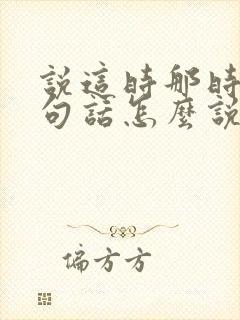 說這時那時
句話怎麼說
偏方方